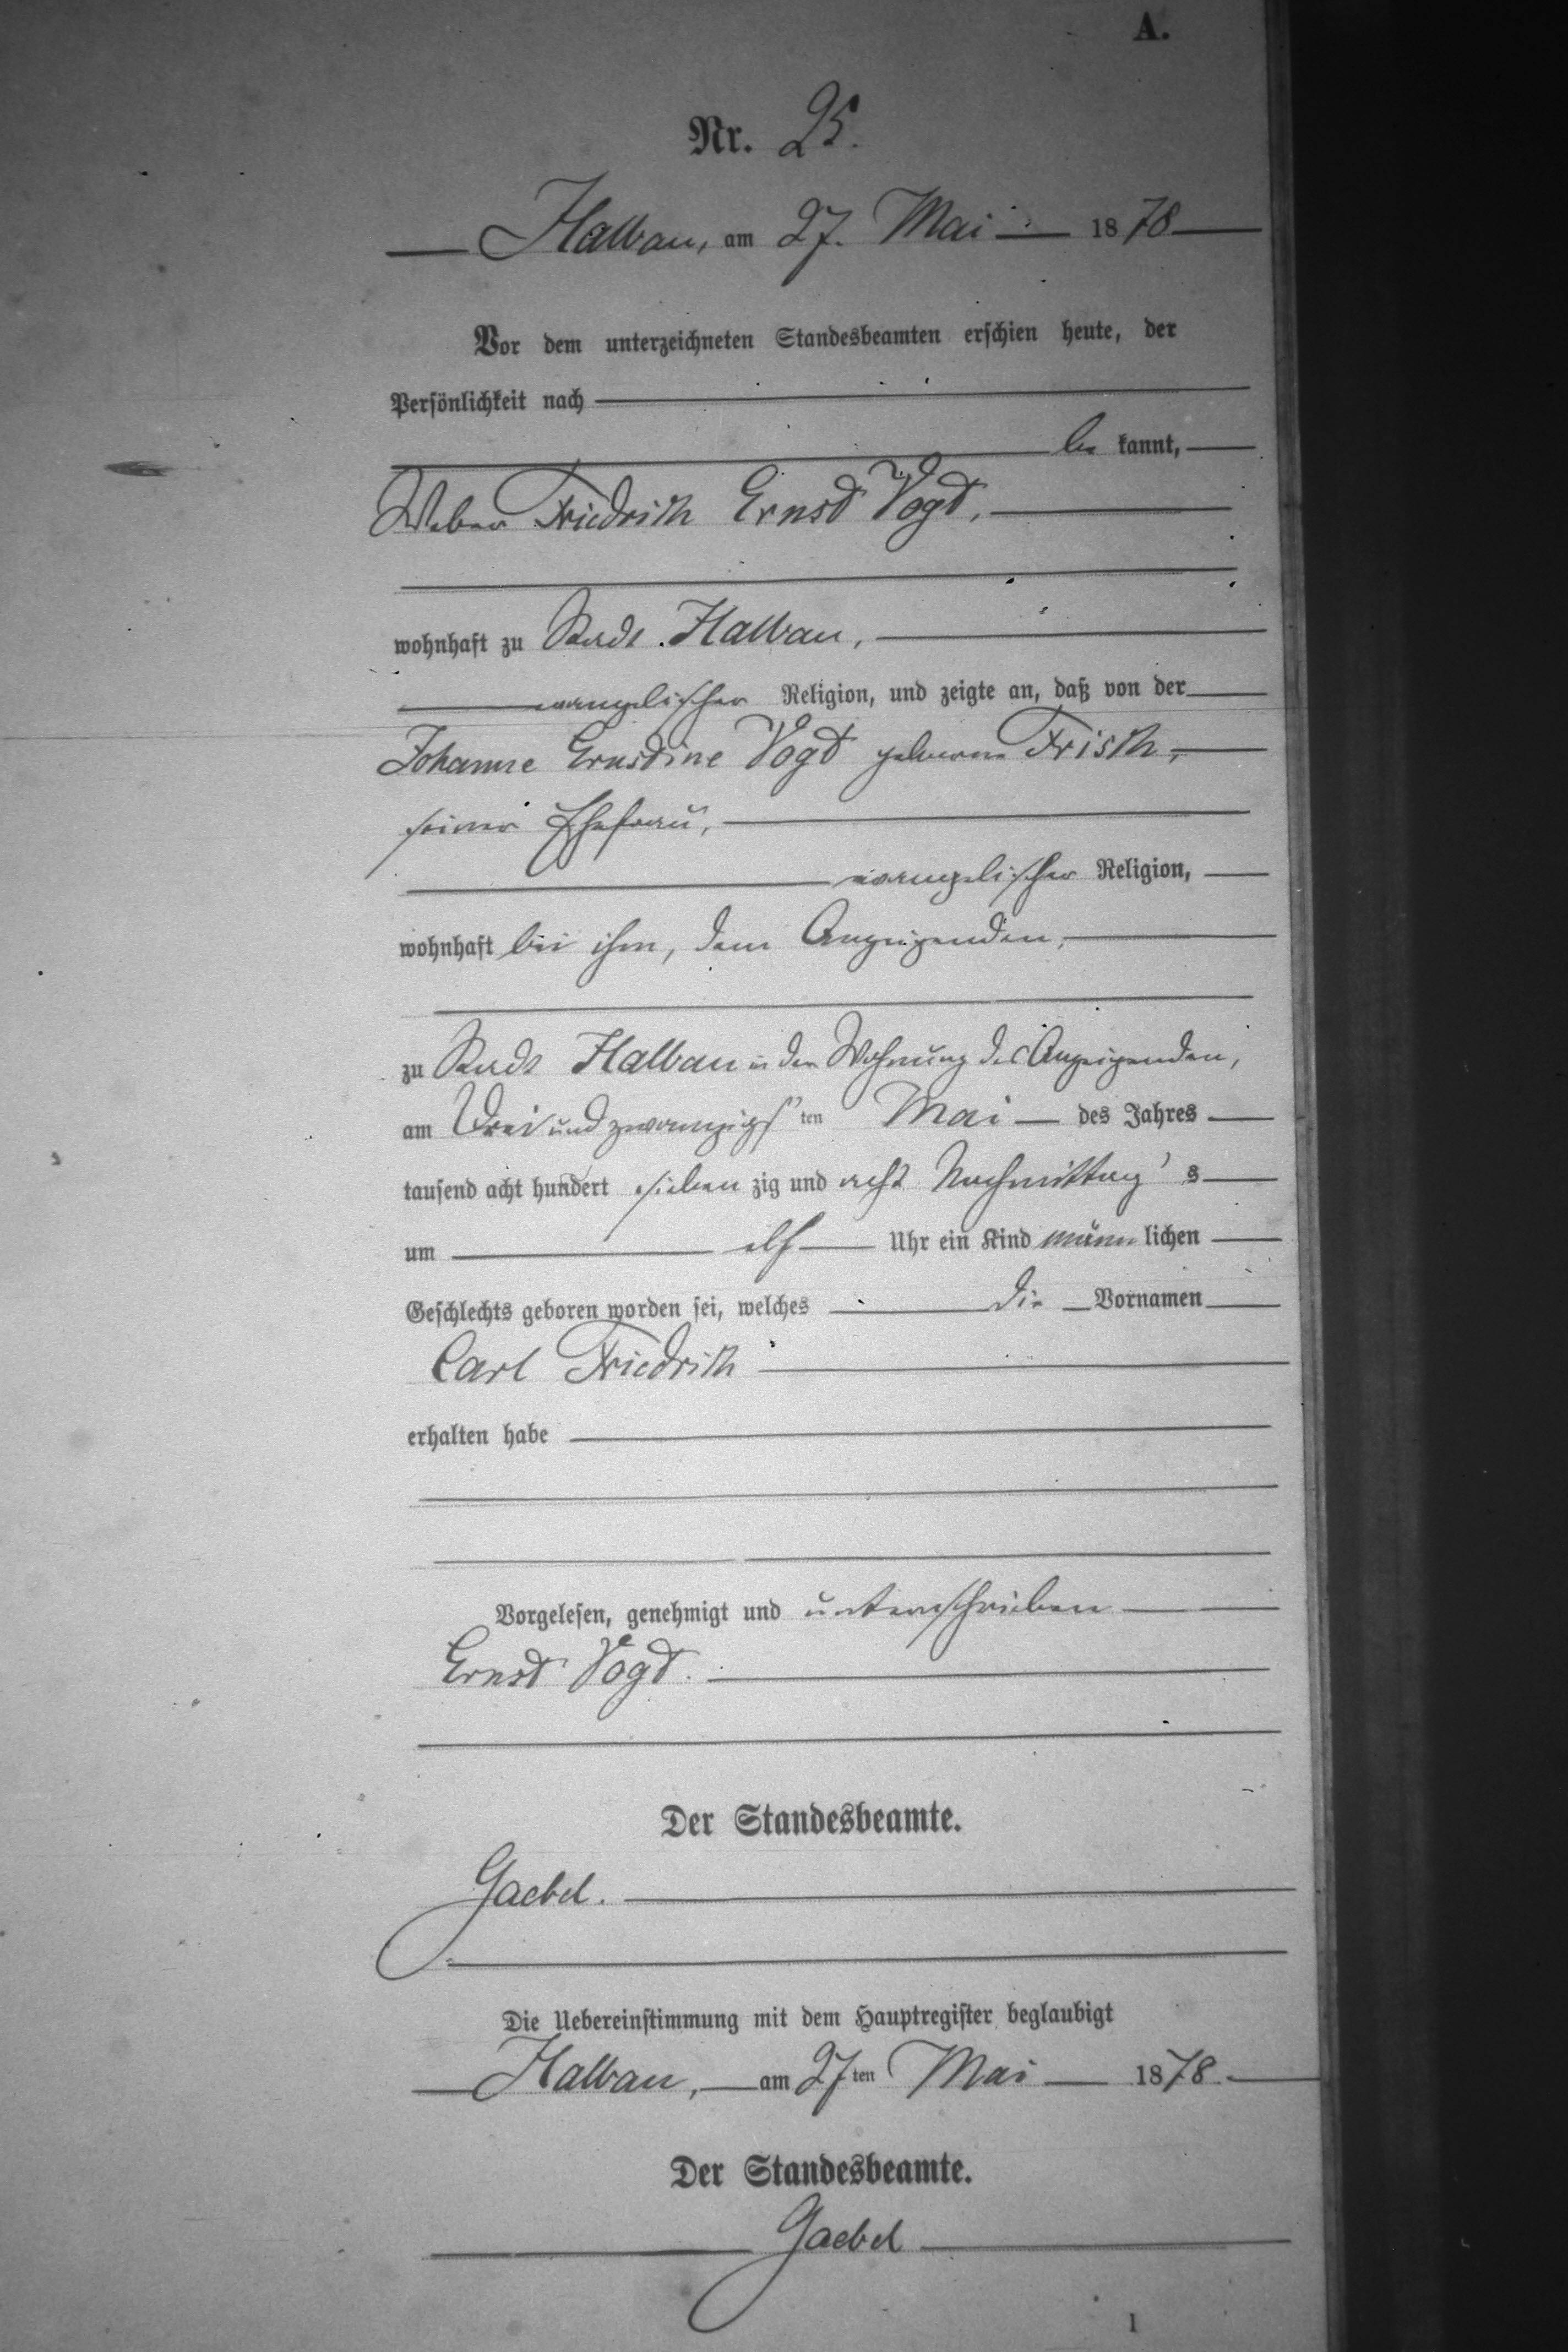 A.
Nr. 25.
Halbau, am 27. Mai 1878
Vor dem unterzeichneten Standesbeamten erschien heute, der
Persönlichkeit nach
be kannt,
Weber Friedrich Ernst Vogt,
wohnhaft zu Stadt Halbau,
evangelischer Religion, und zeigte an, daß von der
Johanne Ernstine Vogt geborene Frisch,
seiner Ehefrau,
evangelischer Religion,
wohnhaft bei ihm, dem Anzeigenden,
zu Stadt Halbau in der Wohnung des Anzeigenden,
am Drei und zwanzigs ten Mai des Jahres
tausend acht hundert sieben zig und acht Nachmittag s
um elf Uhr ein Kind männ lichen
Geschlechts geboren worden sei, welches die Vornamen
Carl Friedrich
erhalten habe
Vorgelesen, genehmigt und unterschrieben
Ernst Vogt.
Der Standesbeamte.
Gaebel.
Die Uebereinstimmung mit dem Hauptregister beglaubigt
Halbau, am 27ten Mai 1878.
Der Standesbeamte.
Gaebel
1